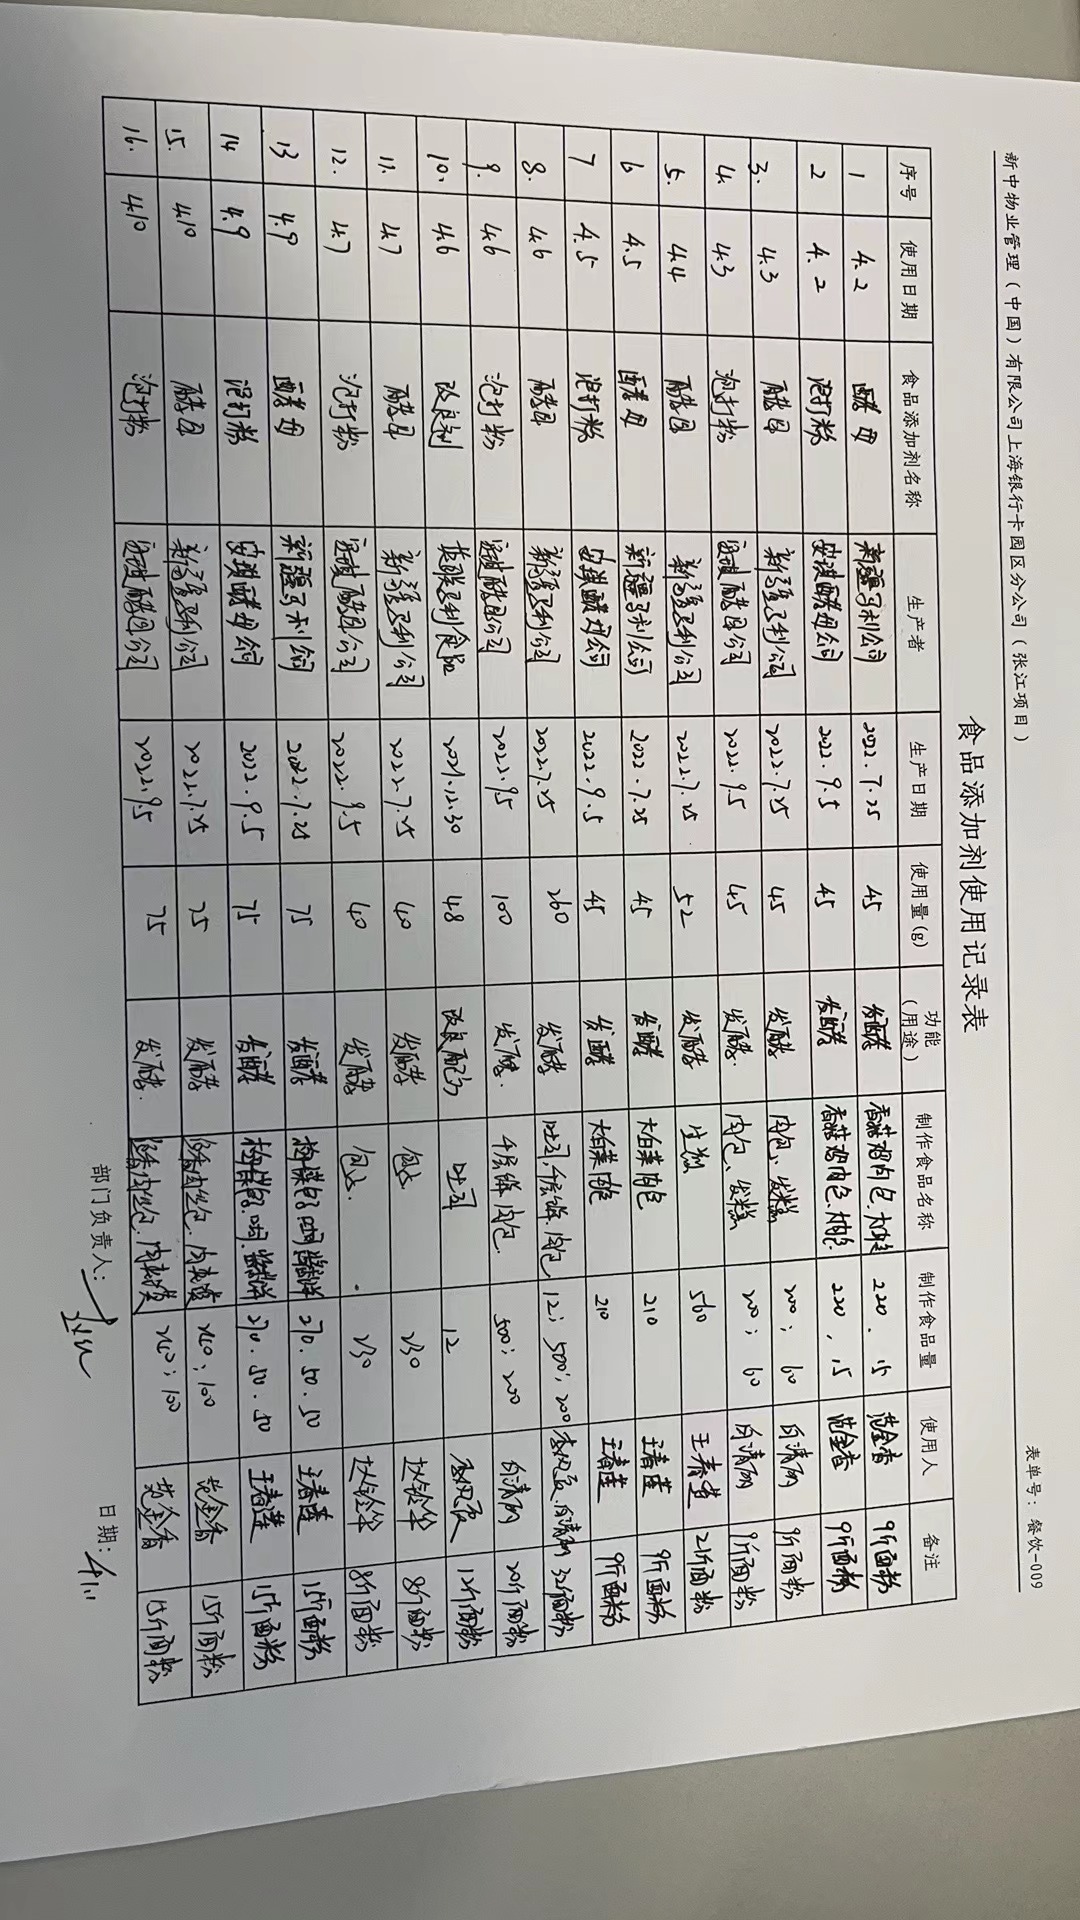 新中物业管理（中国）有限公司上海银行卡园区分公司（张江项目） 表单号：餐饮-009
食品添加剂使用记录表
序号 使用日期 食品添加剂名称 生产者 生产日期 使用量(g) 功能（用途） 制作食品名称 制作食品量 使用人 备注
1 4.2 酵母 新疆马利公司 2022.7.25 45 发酵 香菇鸡肉包、 220.15 范金香 9斤面粉
2 4.2 泡打粉 安琪酵母公司 2022.9.5 45 发酵 香菇鸡肉包、 220,15 范金香 9斤面粉
3. 4.3 酵母 新疆马利公司 2022.7.25 45 发酵 肉包、发糕 200；60 9斤面粉
4. 4.3 泡打粉 安琪酵母公司 2022.9.5 45 发酵. 肉包、发糕 200；60 9斤面粉
5. 4.4 酵母 新疆马利公司 2022.7.25 52 发酵 生煎 560 王春莲 21斤面粉
6 4.5 酵母 新疆马利公司 2022.7.25 45 发酵 大白菜肉包 210 王春莲 9斤面粉
7 4.5 泡打粉 安琪酵母公司 2022.9.5 45 发酵 大白菜肉包 210 王春莲 9斤面粉
8. 4.6 酵母 新疆马利公司 2022.7.25 260 发酵 吐司,千层饼,肉包 12；500；200 32斤面粉
9. 4.6 泡打粉 安琪酵母公司 2022.9.5 100 发酵. 千层饼,肉包 500；200 20斤面粉
10. 4.6 改良剂 食品 2021.12.30 48 改良 吐司 12 12斤面粉
11. 4.7 酵母 新疆马利公司 2022.7.25 40 发酵 230 8斤面粉
12. 4.7 泡打粉 安琪酵母公司 2022.9.5 40 发酵 230 8斤面粉
13 4.9 酵母 新疆马利公司 2022.7.25 75 发酵 270.50.50 王春莲 15斤面粉
14 4.9 泡打粉 安琪酵母公司 2022.9.5 75 发酵 270.50.50 王春莲 15斤面粉
15. 4.10 酵母 新疆马利公司 2022.7.25 75 发酵 240；100 范金香 15斤面粉
16. 4.10 泡打粉 安琪酵母公司 2022.9.5 75 发酵. 240；100 范金香 15斤面粉
部门负责人： 日期：4.11